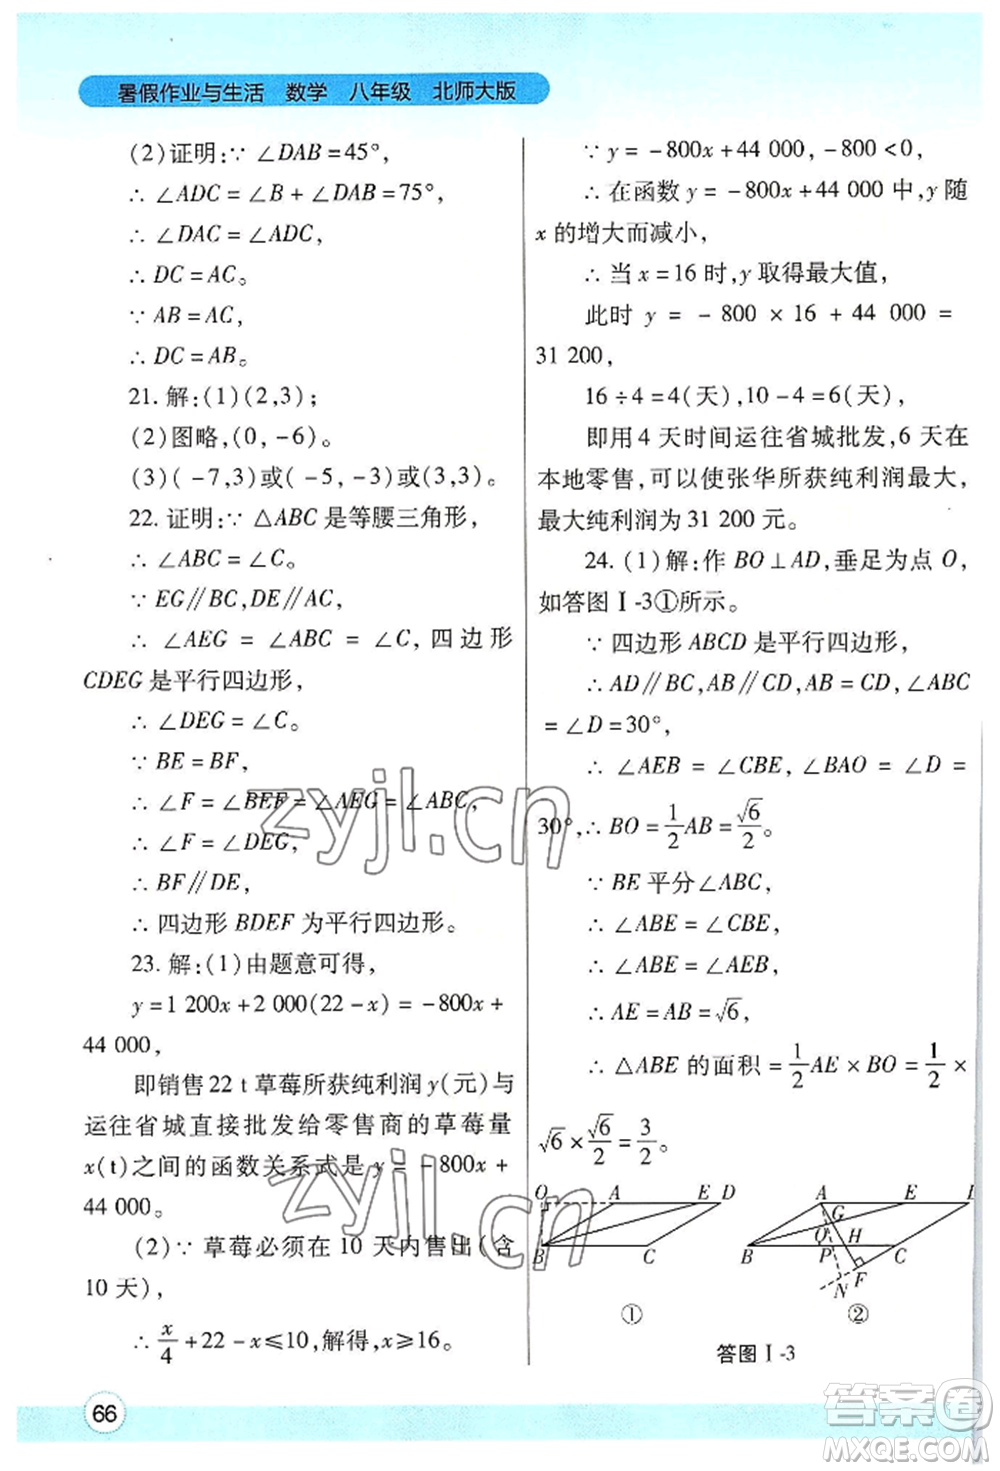 暑假作业与生活 数学 八年级 北师大版
(2)证明:∵ ∠DAB=45°,
∴ ∠ADC=∠B+∠DAB=75°,
∴ ∠DAC=∠ADC,
∴ DC=AC。
∵ AB=AC,
∴ DC=AB。
21. 解:(1)(2,3);
(2)图略,(0,-6)。
(3)(-7,3)或(-5,-3)或(3,3)。
22. 证明:∵ △ABC 是等腰三角形,
∴ ∠ABC=∠C。
∵ EG∥BC,DE∥AC,
∴ ∠AEG = ∠ABC = ∠C,四边形
CDEG 是平行四边形,
∴ ∠DEG=∠C。
∵ BE=BF,
∴ ∠F=∠BEF=∠AEG=∠ABC,
∴ ∠F=∠DEG,
∴ BF∥DE,
∴ 四边形 BDEF 为平行四边形。
23. 解:(1)由题意可得,
y=1 200x+2 000(22-x)=-800x+
44 000,
即销售22 t 草莓所获纯利润 y(元)与
运往省城直接批发给零售商的草莓量
x(t)之间的函数关系式是 y=-800x+
44 000。
(2)∵ 草莓必须在 10 天内售出(含
10 天),
∴ x/4+22-x≤10,解得,x≥16。
∵ y=-800x+44 000,-800<0,
∴ 在函数 y=-800x+44 000 中,y 随
x 的增大而减小,
∴ 当 x=16 时,y 取得最大值,
此时 y = -800 × 16 + 44 000 =
31 200,
16÷4=4(天),10-4=6(天),
即用 4 天时间运往省城批发,6 天在
本地零售,可以使张华所获纯利润最大,
最大纯利润为 31 200 元。
24. (1)解:作 BO⊥AD,垂足为点 O,
如答图Ⅰ-3①所示。
∵ 四边形 ABCD 是平行四边形,
∴ AD∥BC,AB∥CD,AB=CD,∠ABC
=∠D=30°,
∴ ∠AEB=∠CBE,∠BAO=∠D=
30°,∴ BO=1/2AB=√6/2。
∵ BE 平分∠ABC,
∴ ∠ABE=∠CBE,
∴ ∠ABE=∠AEB,
∴ AE=AB=√6,
∴ △ABE 的面积=1/2AE×BO=1/2×
√6×√6/2=3/2。
O A E D
B C
①
A E
G
O H
B P C
F
N
②
答图Ⅰ-3
66
zyjl.cn
zyjl.cn
答案圈
MXQE.COM